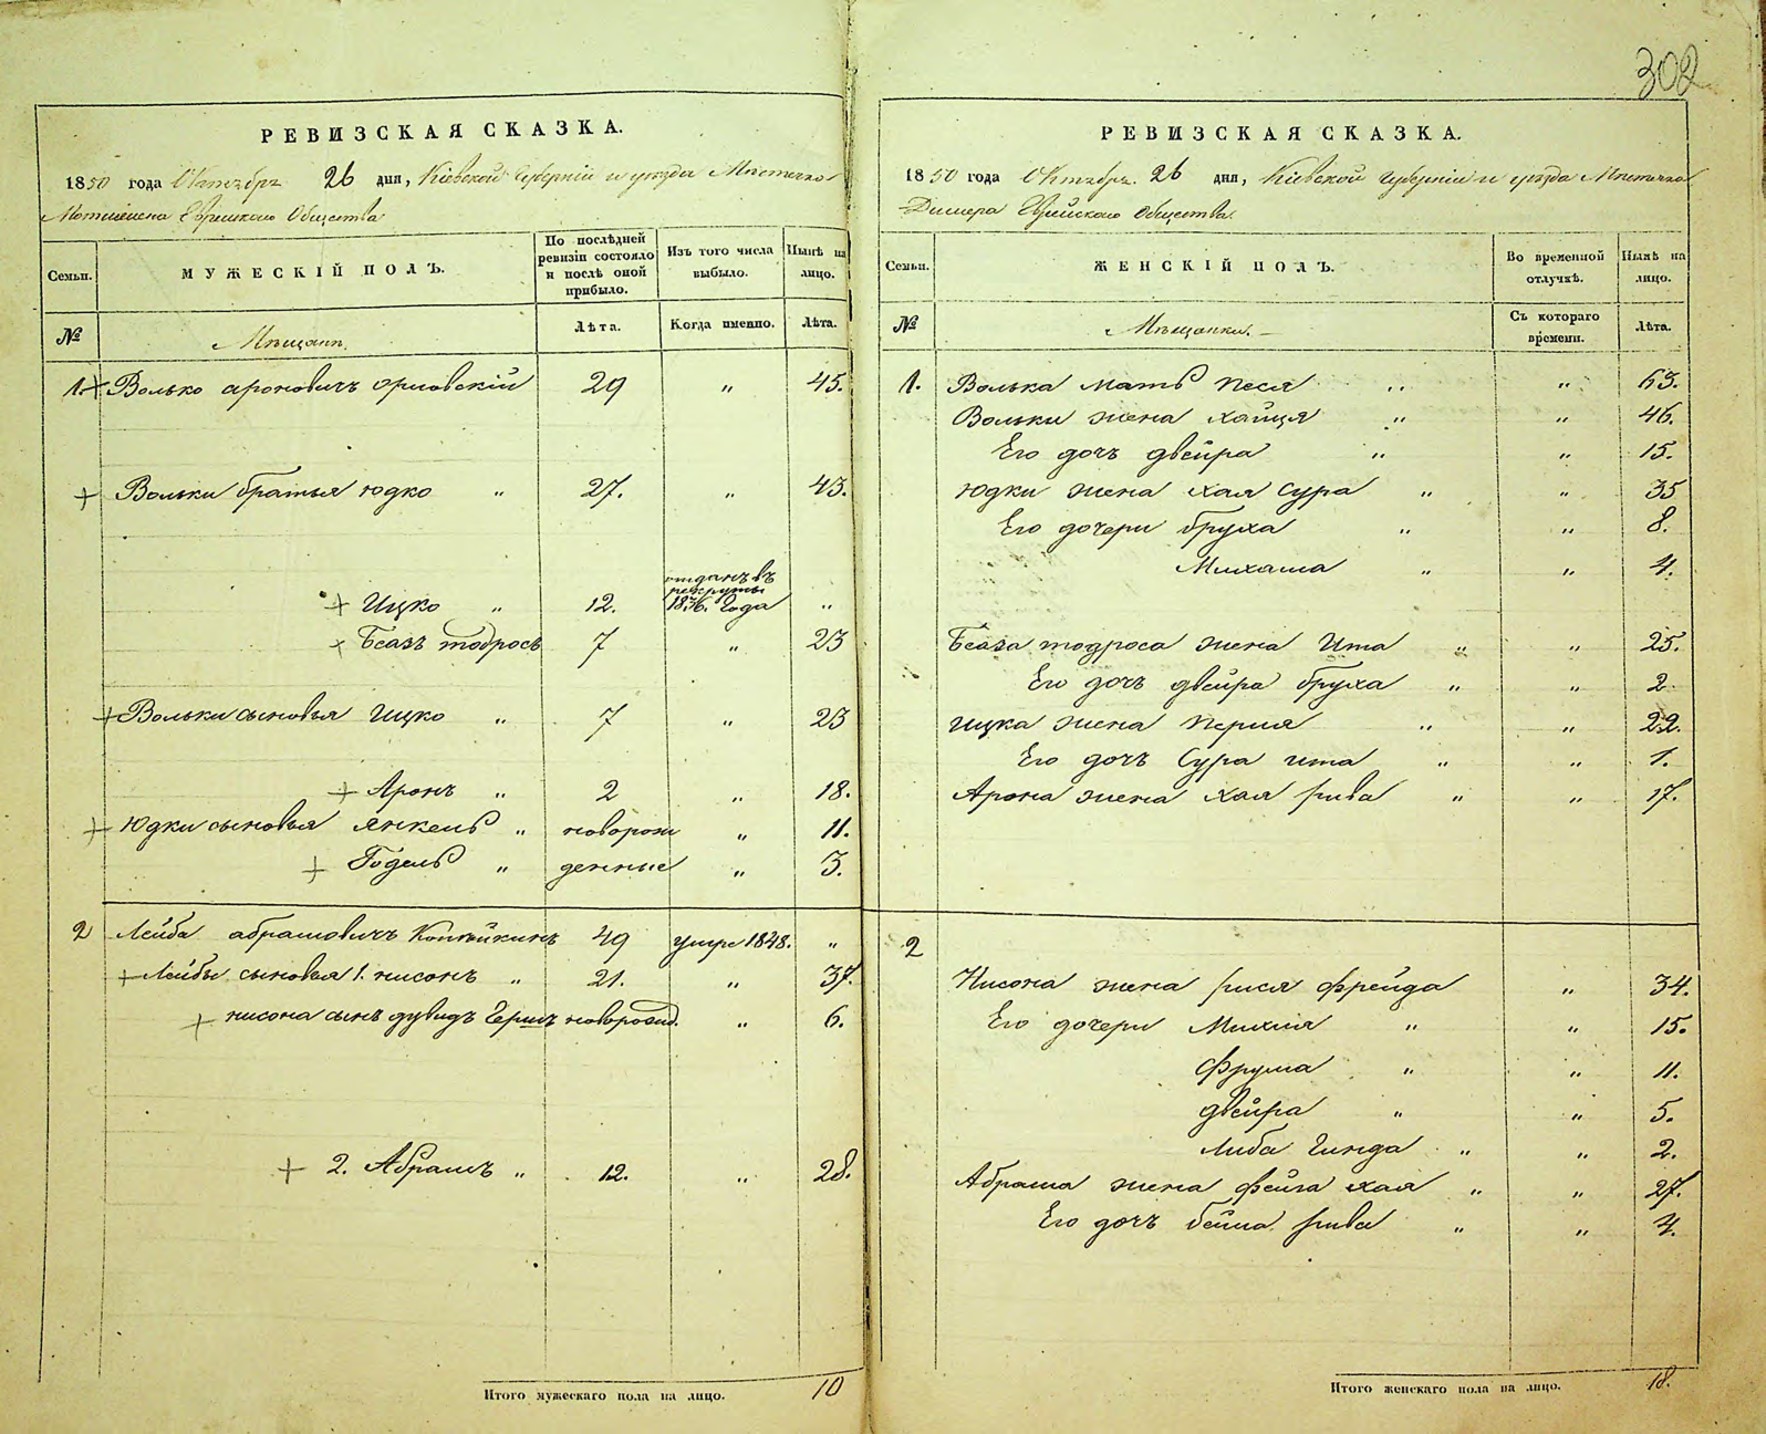 302
РЕВИЗСКАЯ СКАЗКА.
1850 года Октября 26 дня, Кіевской Губерніи и уѣзда Мѣстечка
Еврейскаго Общества
Семьи.
МУЖЕСКІЙ ПОЛЪ.
По послѣдней ревизіи состояло и послѣ оной прибыло.
Изъ того числа выбыло.
Нынѣ на лицо.
№
Мѣщане.
Лѣта.
Когда именно.
Лѣта.
1. + Волько ароновичъ орловскій 29 „ 45.
+ Вольки братья юдко „ 27. „ 43.
отданъ въ
рекруты
+ Ицко „ 12. 1836. Года „
× Беазъ тодросъ 7 „ 23
+ Вольки сыновья Ицко „ 7 „ 23
+ Аронъ „ 2 „ 18.
+ Юдки сыновья янкель „новорож „ 11.
+ Годель „ денные „ 3.
2 Лейба абрамовичъ Копѣйкинъ 49 умре 1848. „
+ Лейбы сыновья 1. нисонъ „ 21. „ 37.
+ нисона сынъ дувидъ Гершъ новорожд. „ 6.
+ 2. Абрамъ „ 12. „ 28.
Итого мужескаго пола на лицо. 10
РЕВИЗСКАЯ СКАЗКА.
1850 года Октября. 26 дня, Кіевской губерніи и уѣзда Мѣстечка
Димера Еврейскаго Общества.
Семьи.
ЖЕНСКІЙ ПОЛЪ.
Во временной отлучкѣ.
Нынѣ на лицо.
№
Мѣщанки.
Съ котораго времени.
Лѣта.
1. Волька мать песя „ „ 63.
Вольки жена хайця „ „ 46.
Его дочь двейра „ „ 15.
Юдки жена хая сура „ „ 35
Его дочери бруха „ „ 8.
Михама „ „ 4.
Беаза тодроса жена Ита „ „ 25.
Его дочь двейра бруха „ „ 2.
ицка жена перля „ „ 22.
Его дочь Сура ита „ „ 1.
Арона жена хая рива „ „ 17.
2
Нисона жена рися фрейда „ 34.
Его дочери Михля „ „ 15.
фрума „ „ 11.
двейра „ „ 5.
Либа Гинда „ „ 2.
Абрама жена фейга хая „ „ 27.
Его дочь бейла рива „ „ 4.
Итого женскаго пола на лицо. 18.